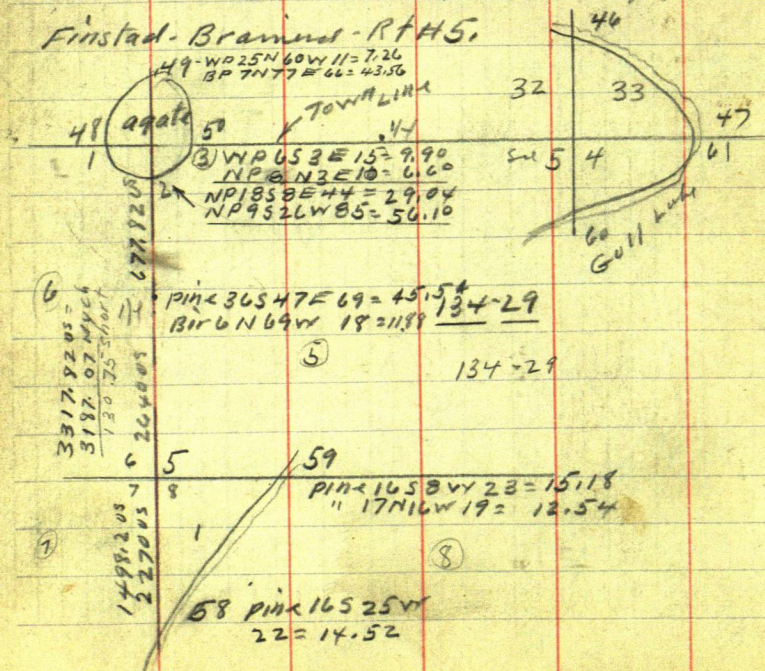 Finstad - Brainerd - Rt #5.
49 - WP 25N 60W 11 = 7.26
BP 7N 77E 66 = 43.56
46
32 33
agate
TOWN LINE
48 50 .44 47
1 ③ WP 6S 3E 15 = 9.90 5 4 61
NP 6 N3E 10 = 6.60
2 NP 18S 8E 44 = 29.04
NP 9S 26W 85 = 56.10
60
Gull Lake
677.82 US
⑥ Pine 36S 47E 69 = 45.54
Bir 6 N 69W 18 = 11.88 134-29
3317.82 US =
3187.07 Nych
130.75 short
2640 US
⑤ 134-29
6 5 59
7 8 Pine 16 S 8W 23 = 15.18
" 17N 16W 19 = 12.54
⑦ 1498.2 US
2270 US
1 ⑧
58 pine 16S 25W
22 = 14.52